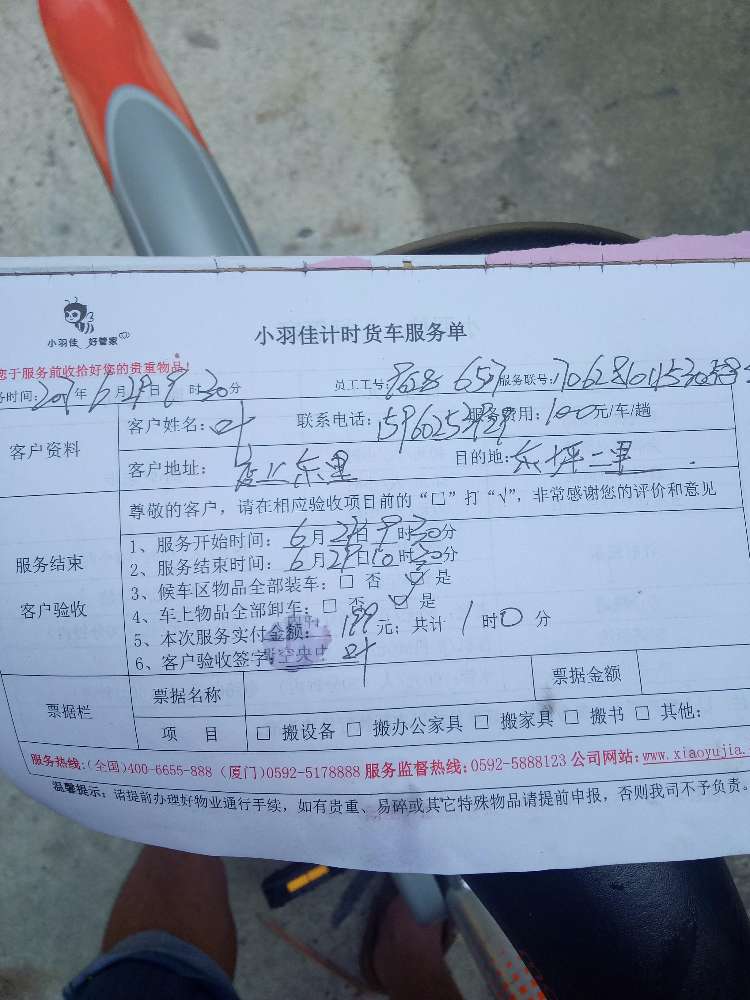 小羽佳 好管家
小羽佳计时货车服务单
您于服务前收拾好您的贵重物品！
务时间：2017年6月29日9时30分 员工工号：8628 657 服务联号：
客户资料
客户姓名：叶 联系电话： 服务费用：100元/车/趟
客户地址： 东里 目的地：东坪二里
尊敬的客户，请在相应验收项目前的“□”打“√”，非常感谢您的评价和意见
服务结束
客户验收
1、服务开始时间：6月29日9时30分
2、服务结束时间：6月29日10时30分
3、候车区物品全部装车：□ 否 ☑ 是
4、车上物品全部卸车：□ 否 ☑ 是
5、本次服务实付金额：199元；共计 1时0分
6、客户验收签字：叶
票据栏
票据名称 票据金额
项 目 □ 搬设备 □ 搬办公家具 □ 搬家具 □ 搬书 □ 其他：
服务热线：(全国)400-6655-888 (厦门)0592-5178888 服务监督热线：0592-5888123 公司网站：www.xiaoyujia.
温馨提示：请提前办理好物业通行手续，如有贵重、易碎或其它特殊物品请提前申报，否则我司不予负责。